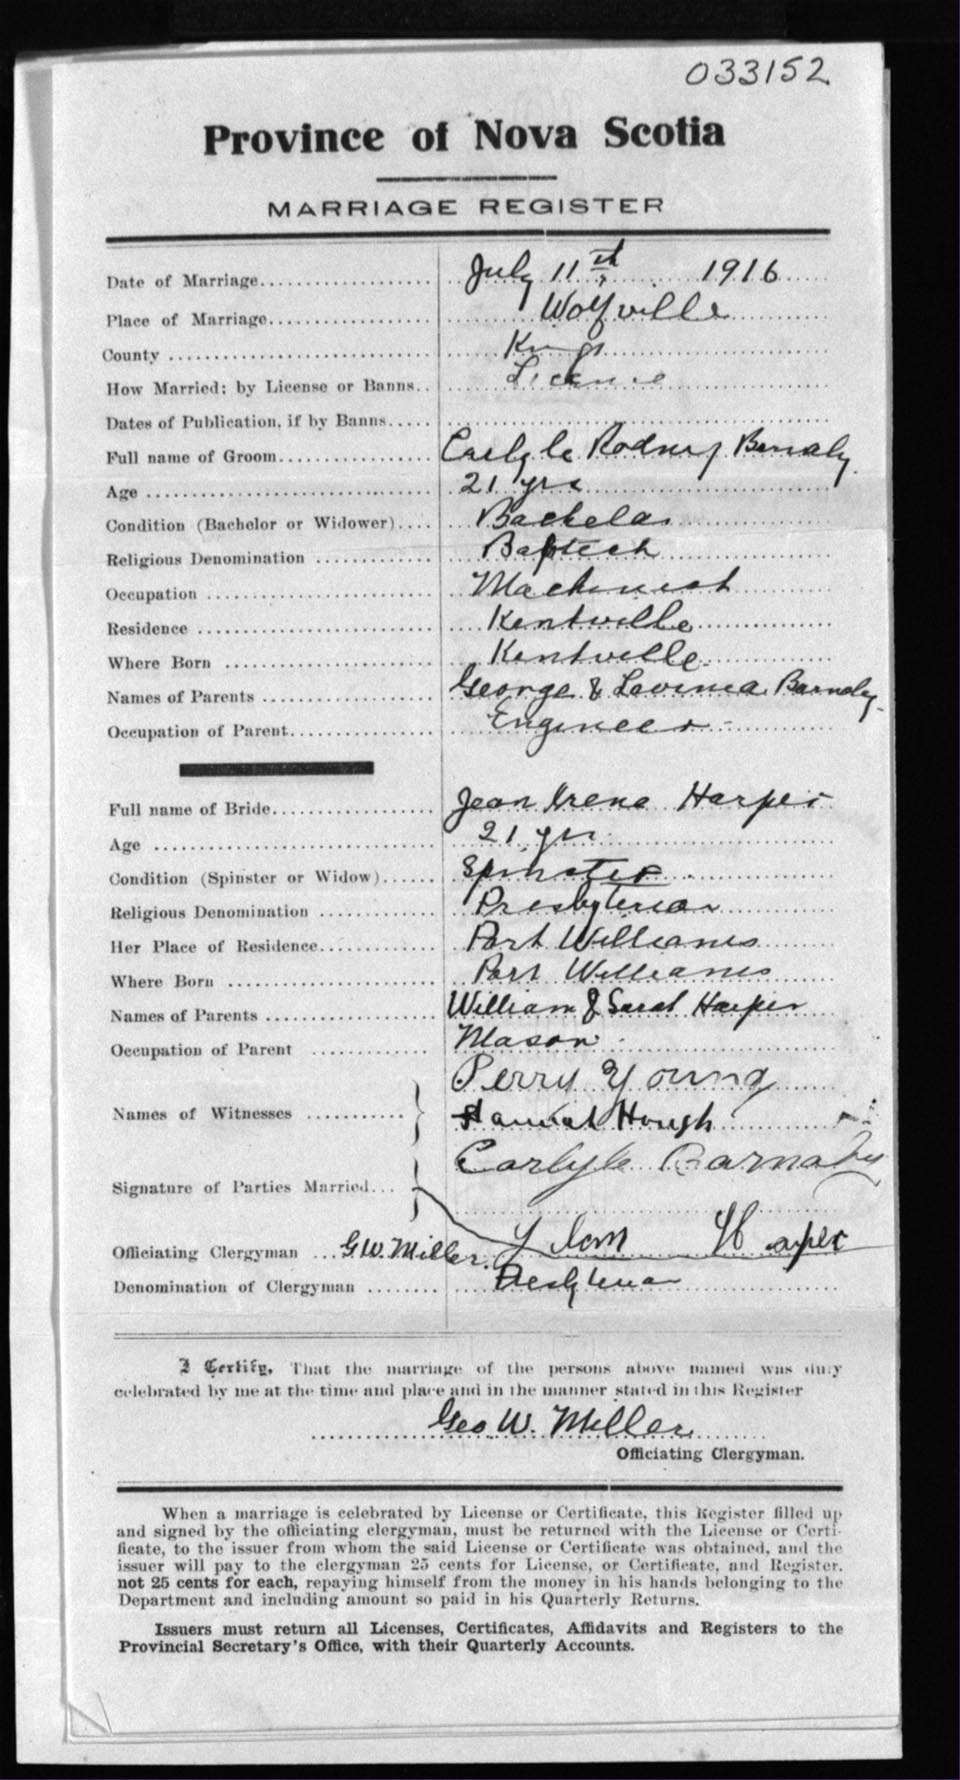 033152
Province of Nova Scotia
MARRIAGE REGISTER
Date of Marriage.................... July 11th 1916
Place of Marriage................... Wolfville
County .............................. Kings
How Married; by License or Banns.. License
Dates of Publication, if by Banns.....
Full name of Groom.................. Carlyle Rodney Barnaby
Age .................................. 21 yrs
Condition (Bachelor or Widower).... Bachelor
Religious Denomination .............. Baptist
Occupation .......................... Machinist
Residence ........................... Kentville
Where Born ......................... Kentville
Names of Parents .................... George & Lavinia Barnaby
Occupation of Parent................ Engineer
Full name of Bride................... Jean Irene Harper
Age .................................. 21 yrs
Condition (Spinster or Widow)...... Spinster
Religious Denomination .............. Presbyterian
Her Place of Residence.............. Port Williams
Where Born ......................... Port Williams
Names of Parents .................... William & Sarah Harper
Occupation of Parent ............... Mason
Perry Young
Names of Witnesses ........... Hannah Hough
Carlyle Barnaby
Signature of Parties Married...
Harper
Officiating Clergyman ... G.W. Miller.
Denomination of Clergyman ........ Presbyterian
I Certify, That the marriage of the persons above named was duly
celebrated by me at the time and place and in the manner stated in this Register
Geo. W. Miller
Officiating Clergyman.
When a marriage is celebrated by License or Certificate, this Register filled up
and signed by the officiating clergyman, must be returned with the License or Certi-
ficate, to the issuer from whom the said License or Certificate was obtained, and the
issuer will pay to the clergyman 25 cents for License, or Certificate, and Register.
not 25 cents for each, repaying himself from the money in his hands belonging to the
Department and including amount so paid in his Quarterly Returns.
Issuers must return all Licenses, Certificates, Affidavits and Registers to the
Provincial Secretary's Office, with their Quarterly Accounts.